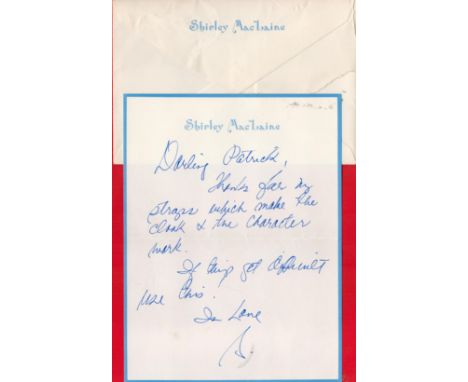 Shirley MacLaine
Shirley MacLaine
Darling Patrick,
Thanks for my
straps which make the
cloak & the character
work.
If things get difficult
use this.
In Love
S